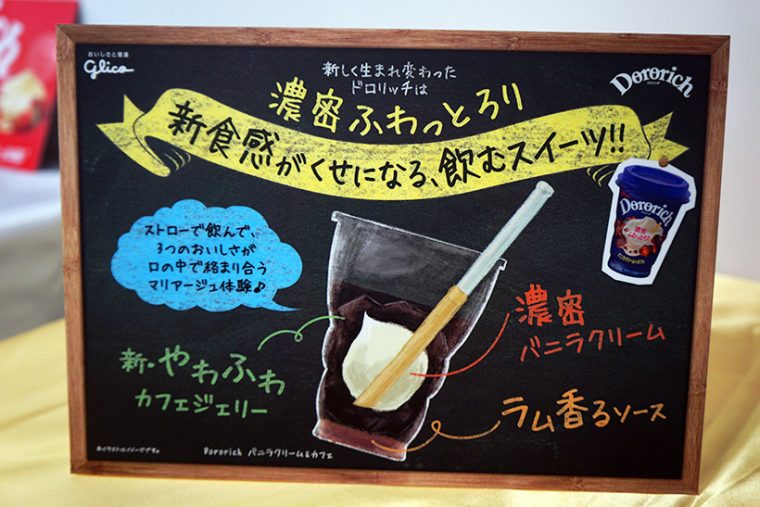 おいしさと健康
glico
新しく生まれ変わった
ドロリッチは
Dororich
ドロリッチ
濃密ふわっとろり
新食感がくせになる、飲むスイーツ!!
Dororich
濃密
ふわっとろり
ストローで飲んで、
3つのおいしさが
口の中で絡まり合う
マリアージュ体験♪
濃密
バニラクリーム
新・やわふわ
カフェジェリー
ラム香るソース
※イラストはイメージです。
Dororich バニラクリーム&カフェ